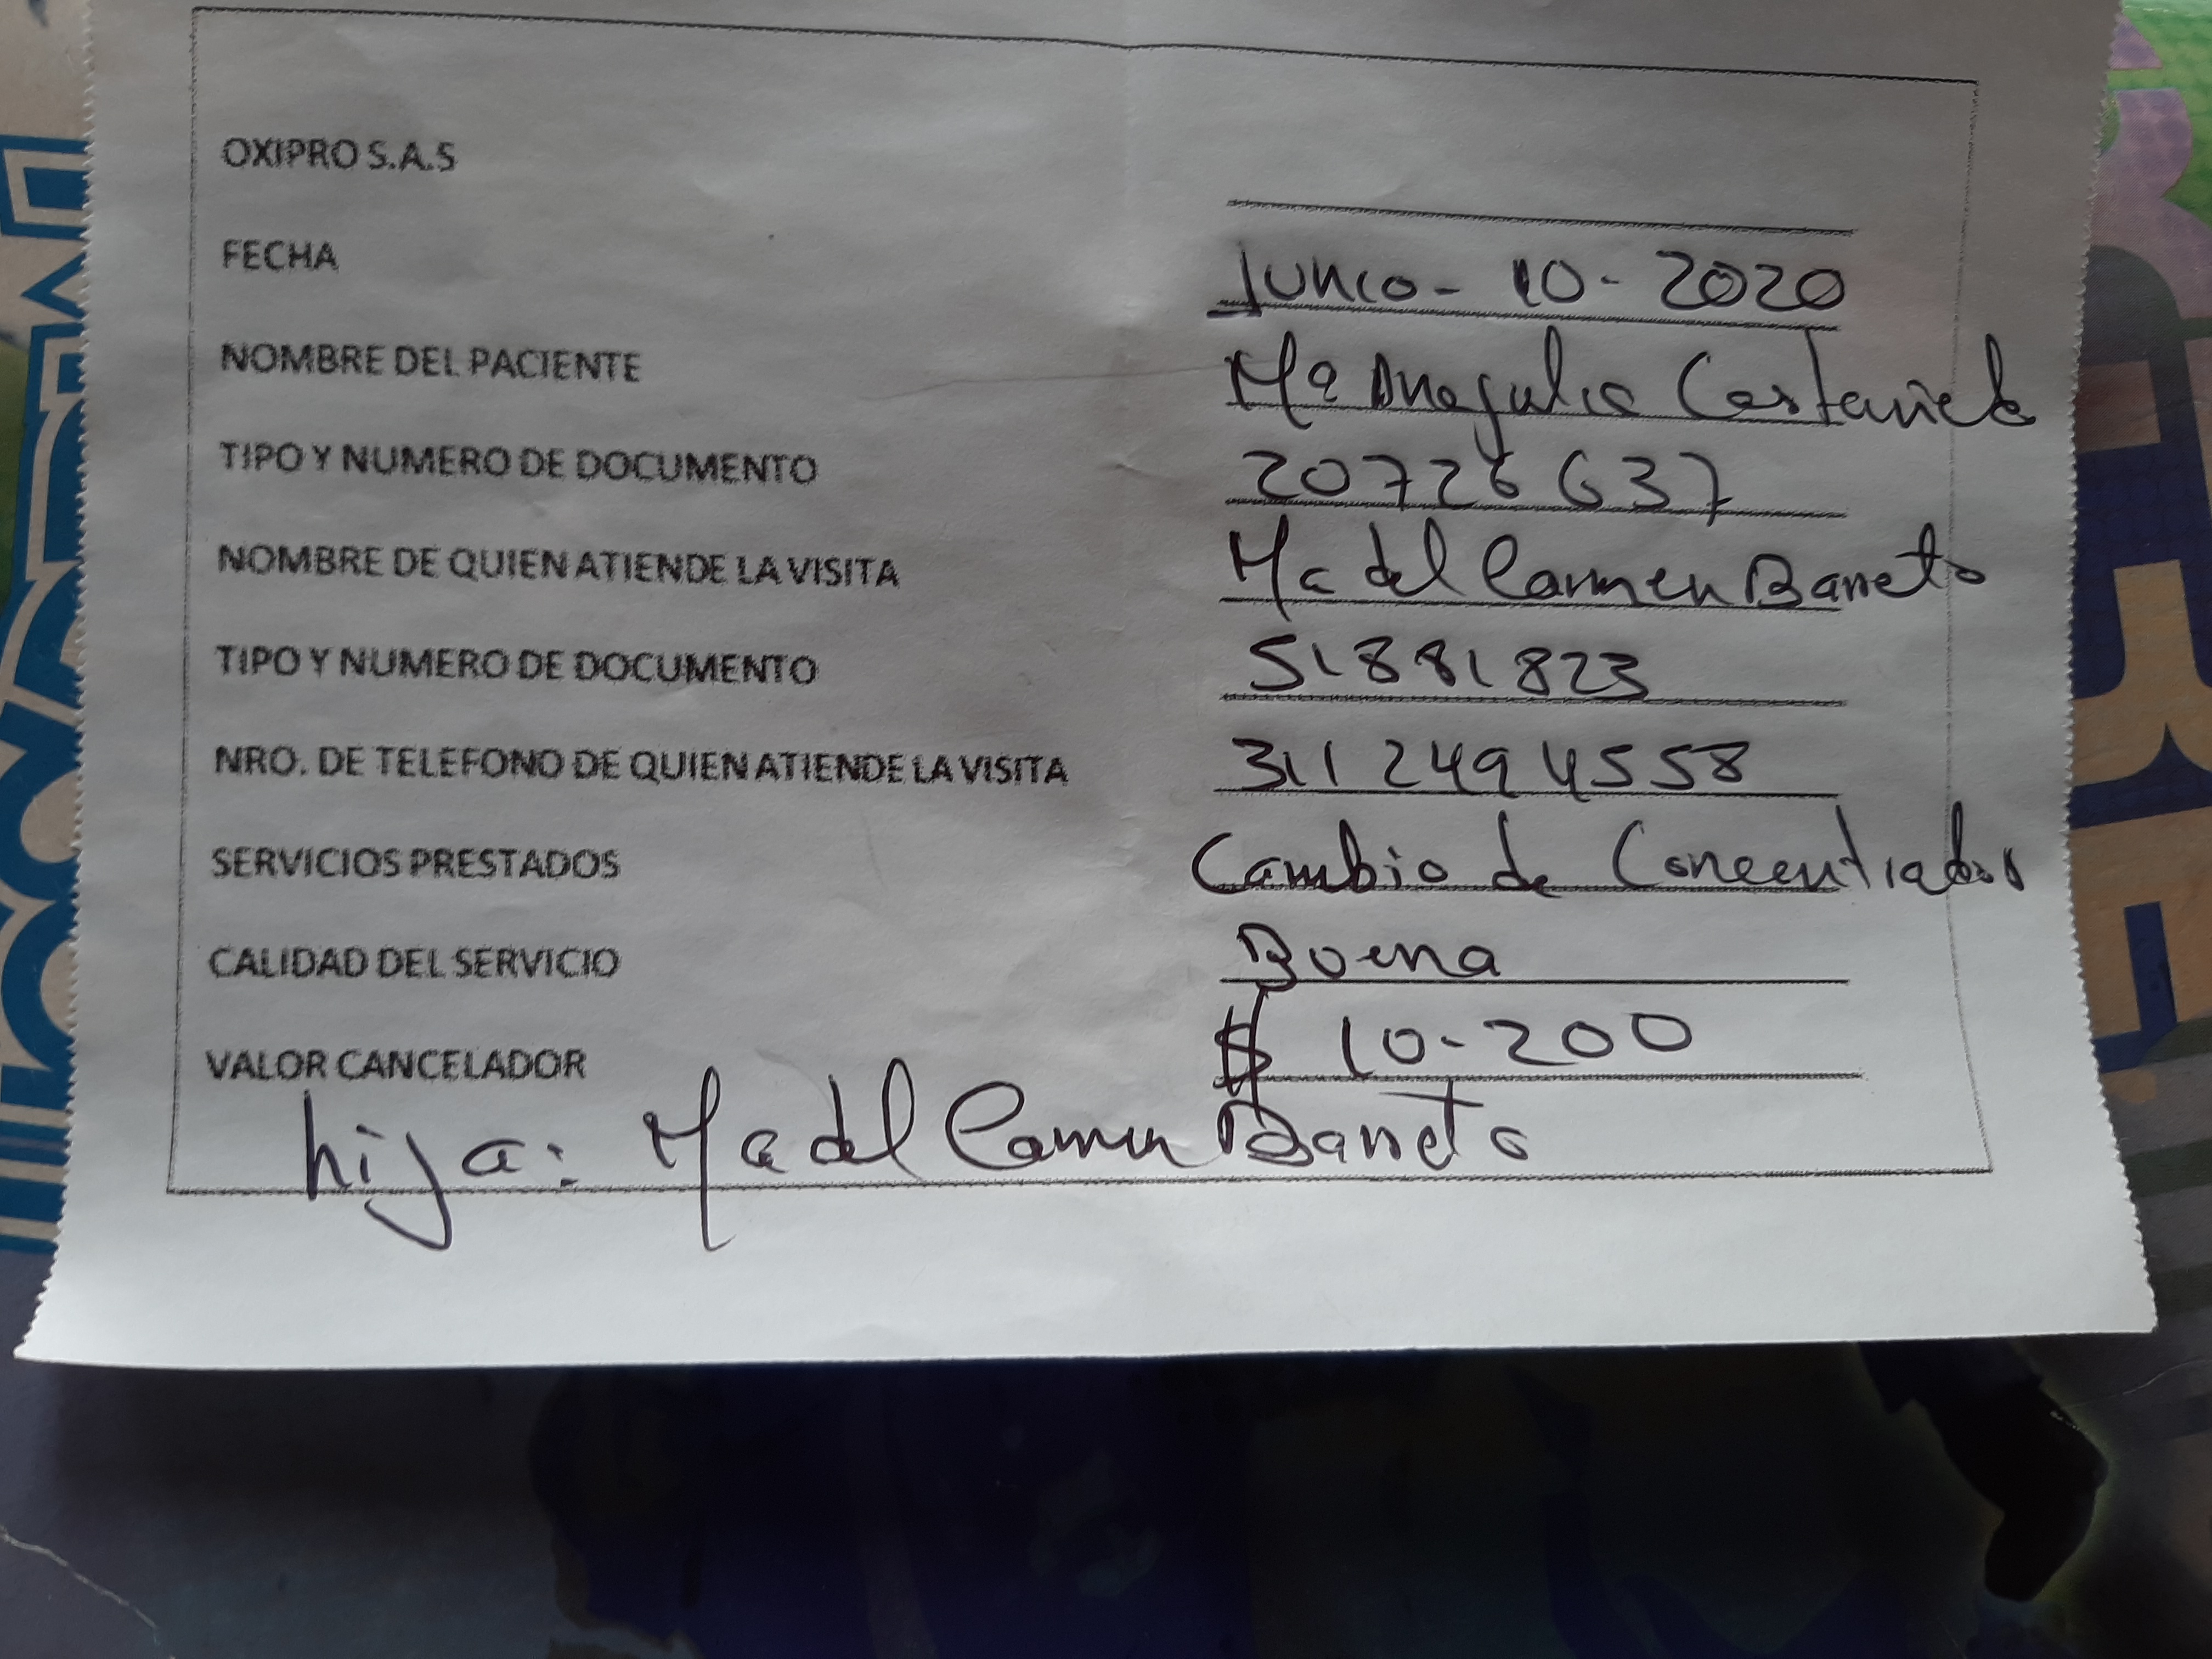 OXIPRO S.A.S
FECHA Junio - 10 - 2020
NOMBRE DEL PACIENTE Mª Castañeda
TIPO Y NUMERO DE DOCUMENTO 20726637
NOMBRE DE QUIEN ATIENDE LA VISITA Ma del Carmen Barreto
TIPO Y NUMERO DE DOCUMENTO 51881823
NRO. DE TELEFONO DE QUIEN ATIENDE LA VISITA 311 249 4558
SERVICIOS PRESTADOS Cambio de Concentrador
CALIDAD DEL SERVICIO Buena
VALOR CANCELADOR $ 10-200
hija: Ma del Carmen Barreto